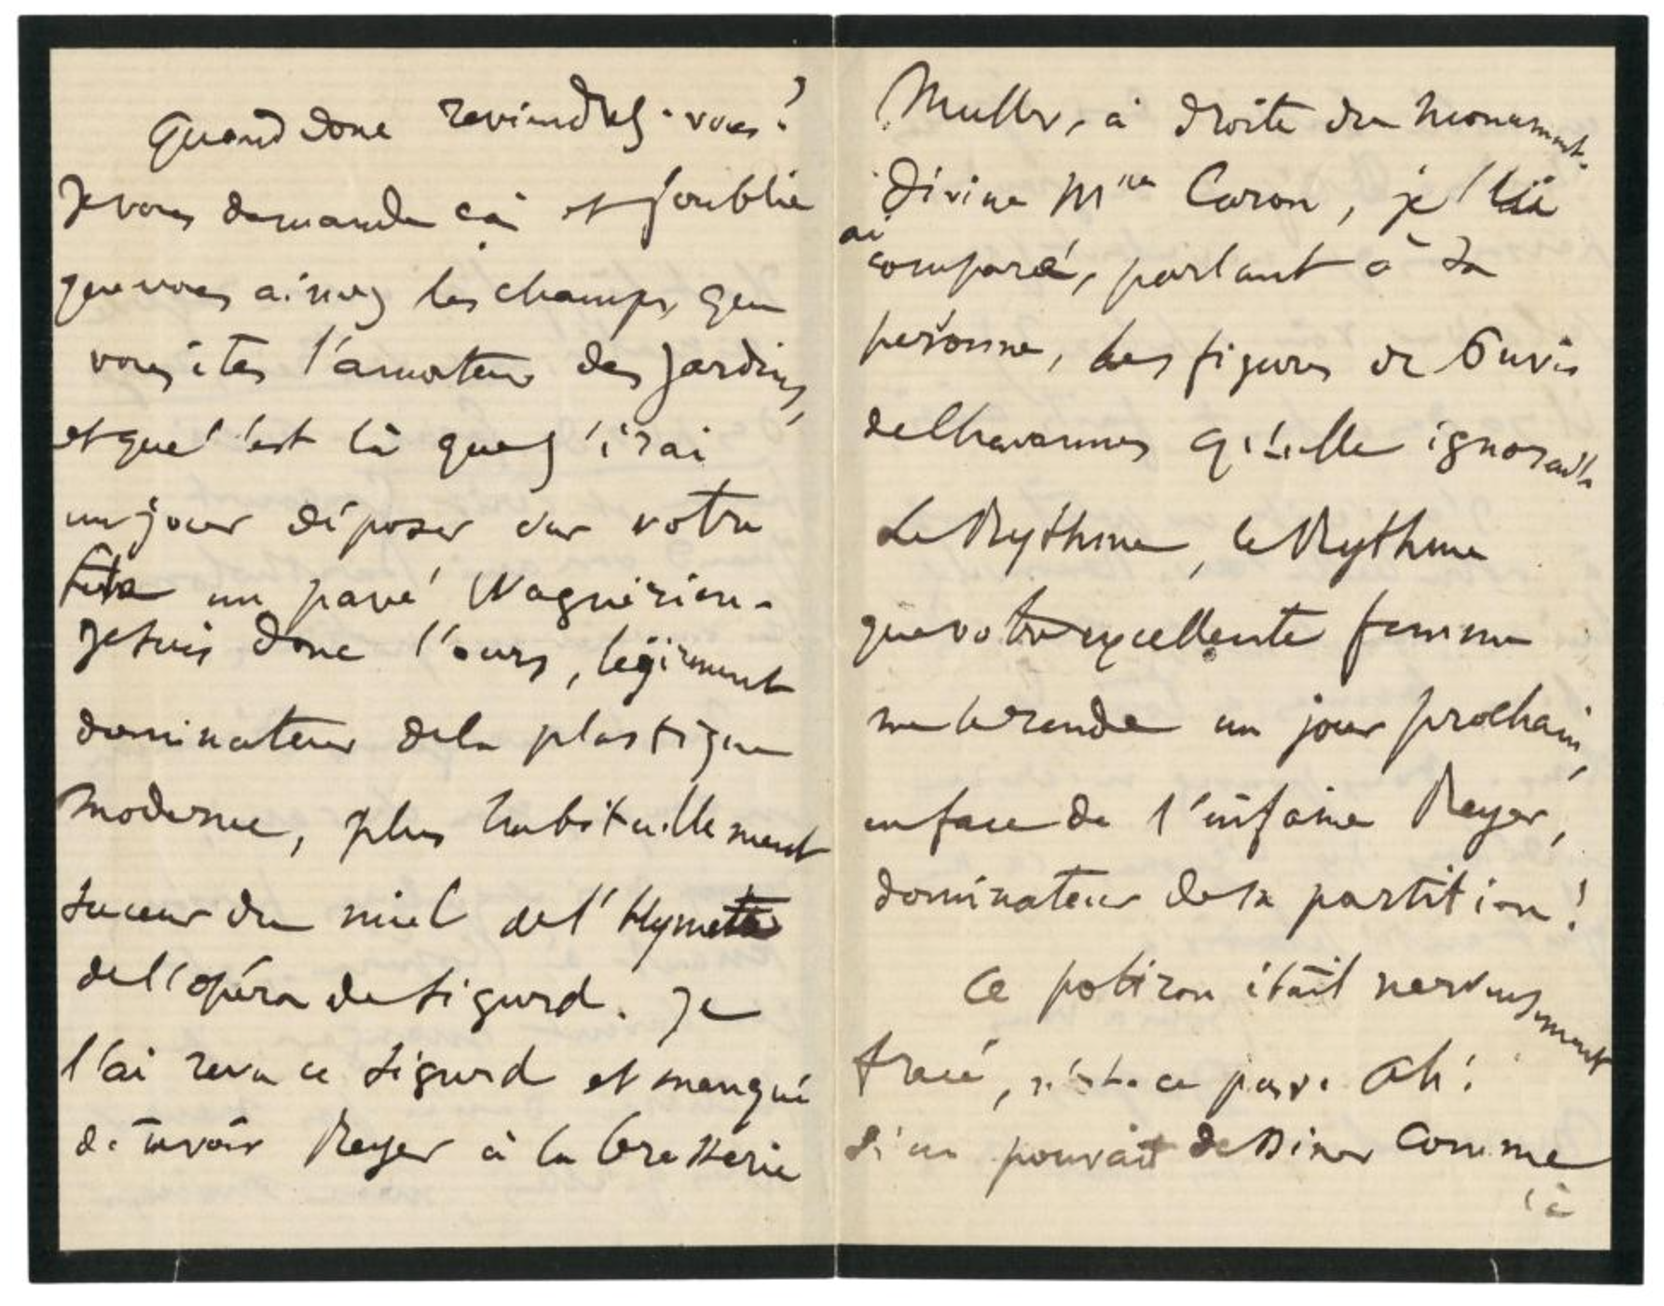 Quand donc reviendrez-vous?
Je vous demande cà et j'oublie
que vous aimez les champs, que
vous êtes l'amateur des jardins,
et que c'est là que j'irai
un jour déposer sur votre
tête un pavé Wagnérien.
Je suis donc l'ours, légèrement
dominateur de la plastique
moderne, plus habituellement
suceur du miel de l'Hymette
de l'opéra de Sigurd. Je
l'ai revu ce Sigurd et manqué
de revoir Reyer à la brasserie
Muller, à droite du monument.
Divine Mme Caron, je l'
ai
comparé, parlant à sa
personne, les figures de Puvis
de Chavannes qu'elle ignorait.
Le Rythme, le Rythme
que votre excellente femme
me le rende un jour prochain,
en face de l'infâme Reyer,
dominateur de sa partition!
Ce potiron était nerveusement
tracé, n'est-ce pas. Ah!
si on pouvait dessiner comme
çà